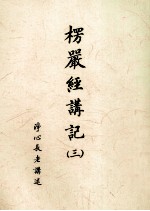 楞嚴經講記
(三)
淨心長老講述